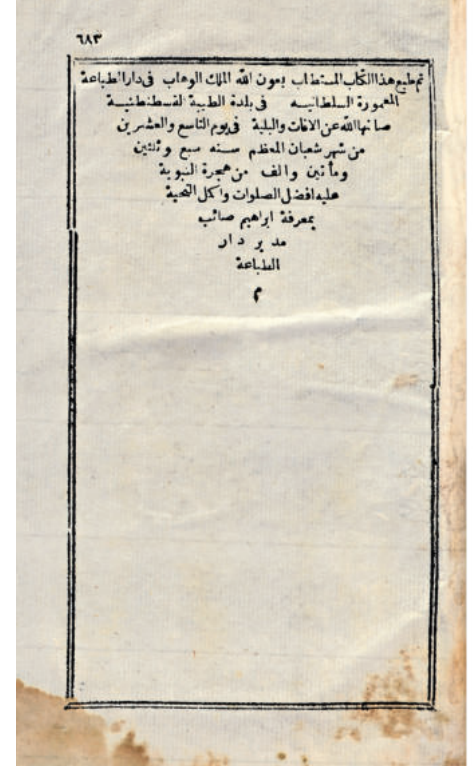 ٦٨٣
تم طبع هذا الكتاب المستطاب بعون الله الملك الوهاب فى دار الطباعة
المعمورة السلطانيه فى بلدة الطيبة القسطنطنية
صانها الله عن الافات والبلية فى يوم التاسع والعشرين
من شهر شعبان المعظم سنه سبع وثلثين
ومأتين والف من هجرة النبوية
عليه افضل الصلوات واكل التحية
بمعرفة ابراهيم صائب
مدير دار
الطباعة
م